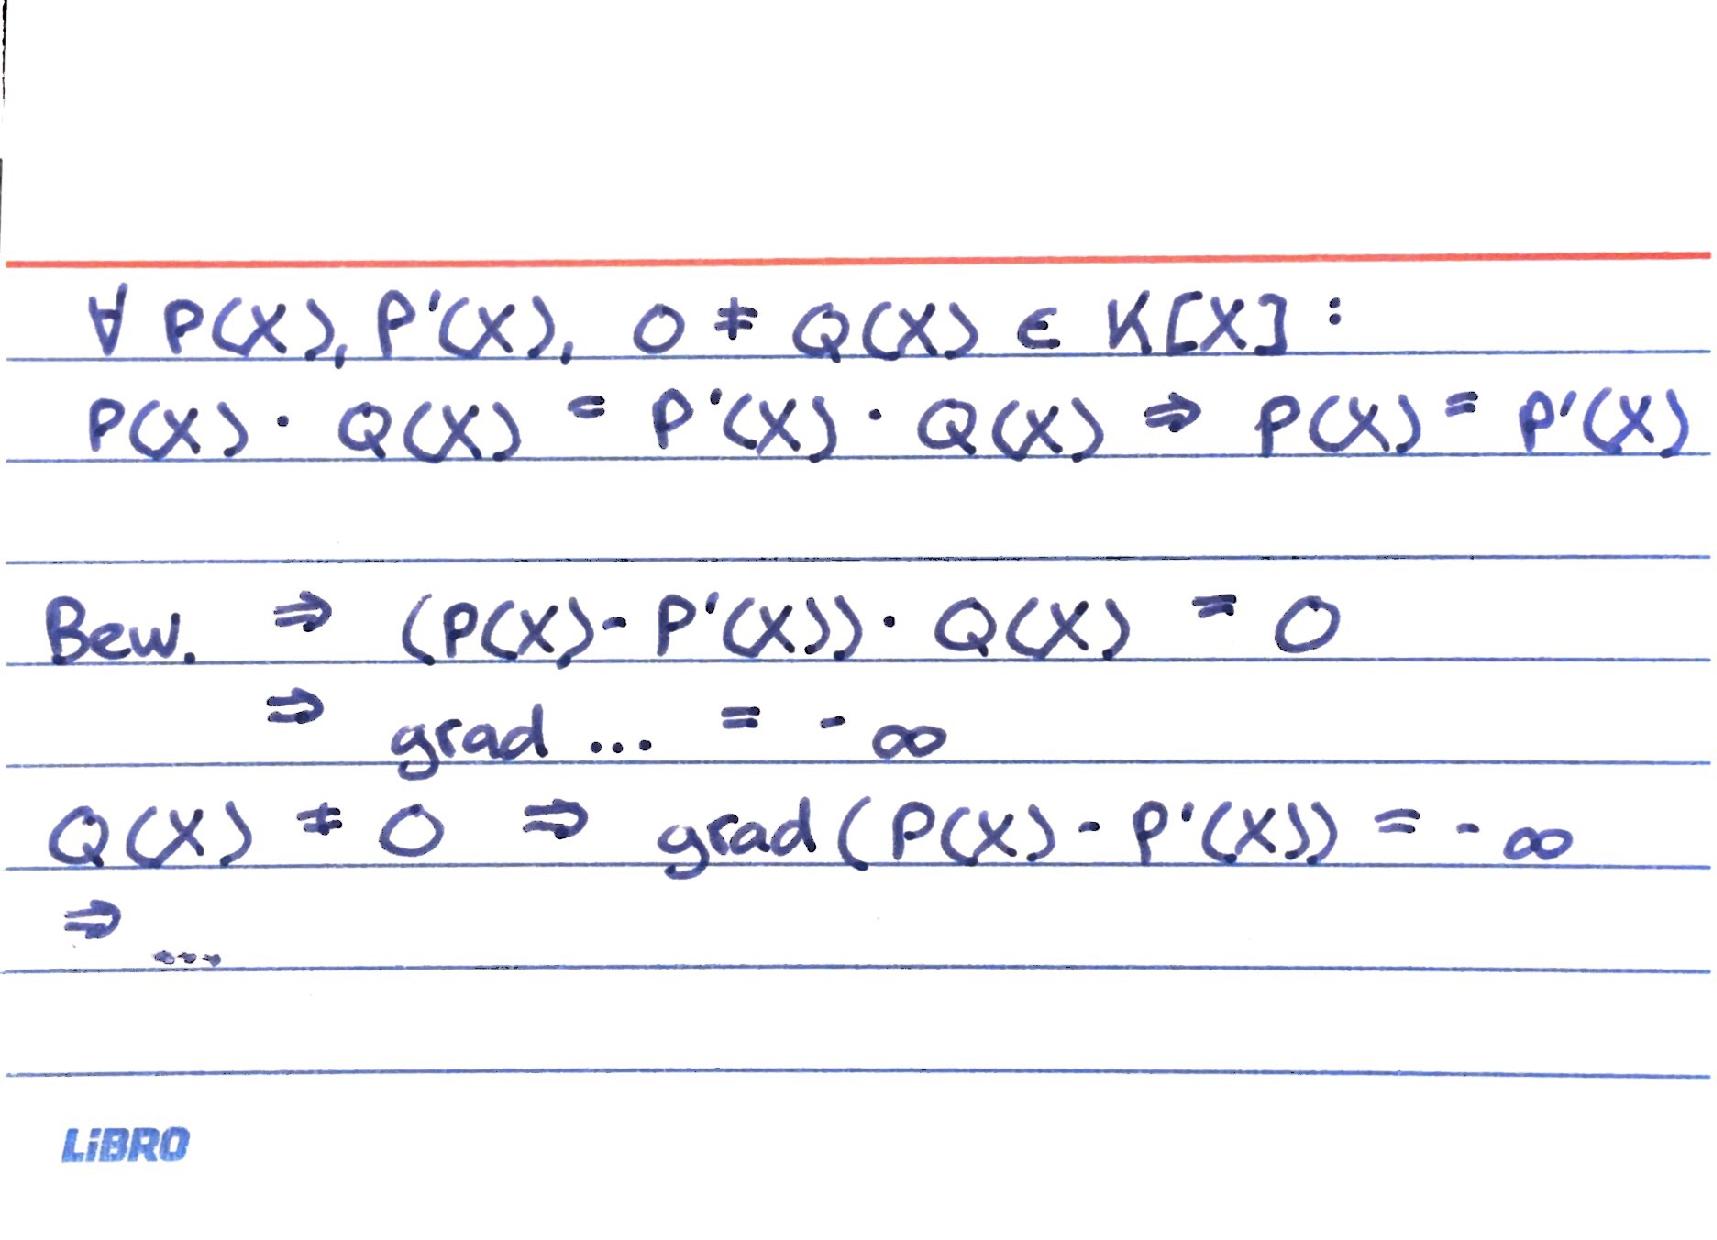 ∀ P(X), P'(X), 0 ≠ Q(X) ∈ K[X] :
P(X) · Q(X) = P'(X) · Q(X) ⇒ P(X) = P'(X)
Bew. ⇒ (P(X) - P'(X)) · Q(X) = 0
⇒ grad ... = - ∞
Q(X) ≠ 0 ⇒ grad (P(X) - P'(X)) = - ∞
⇒ ...
LiBRO